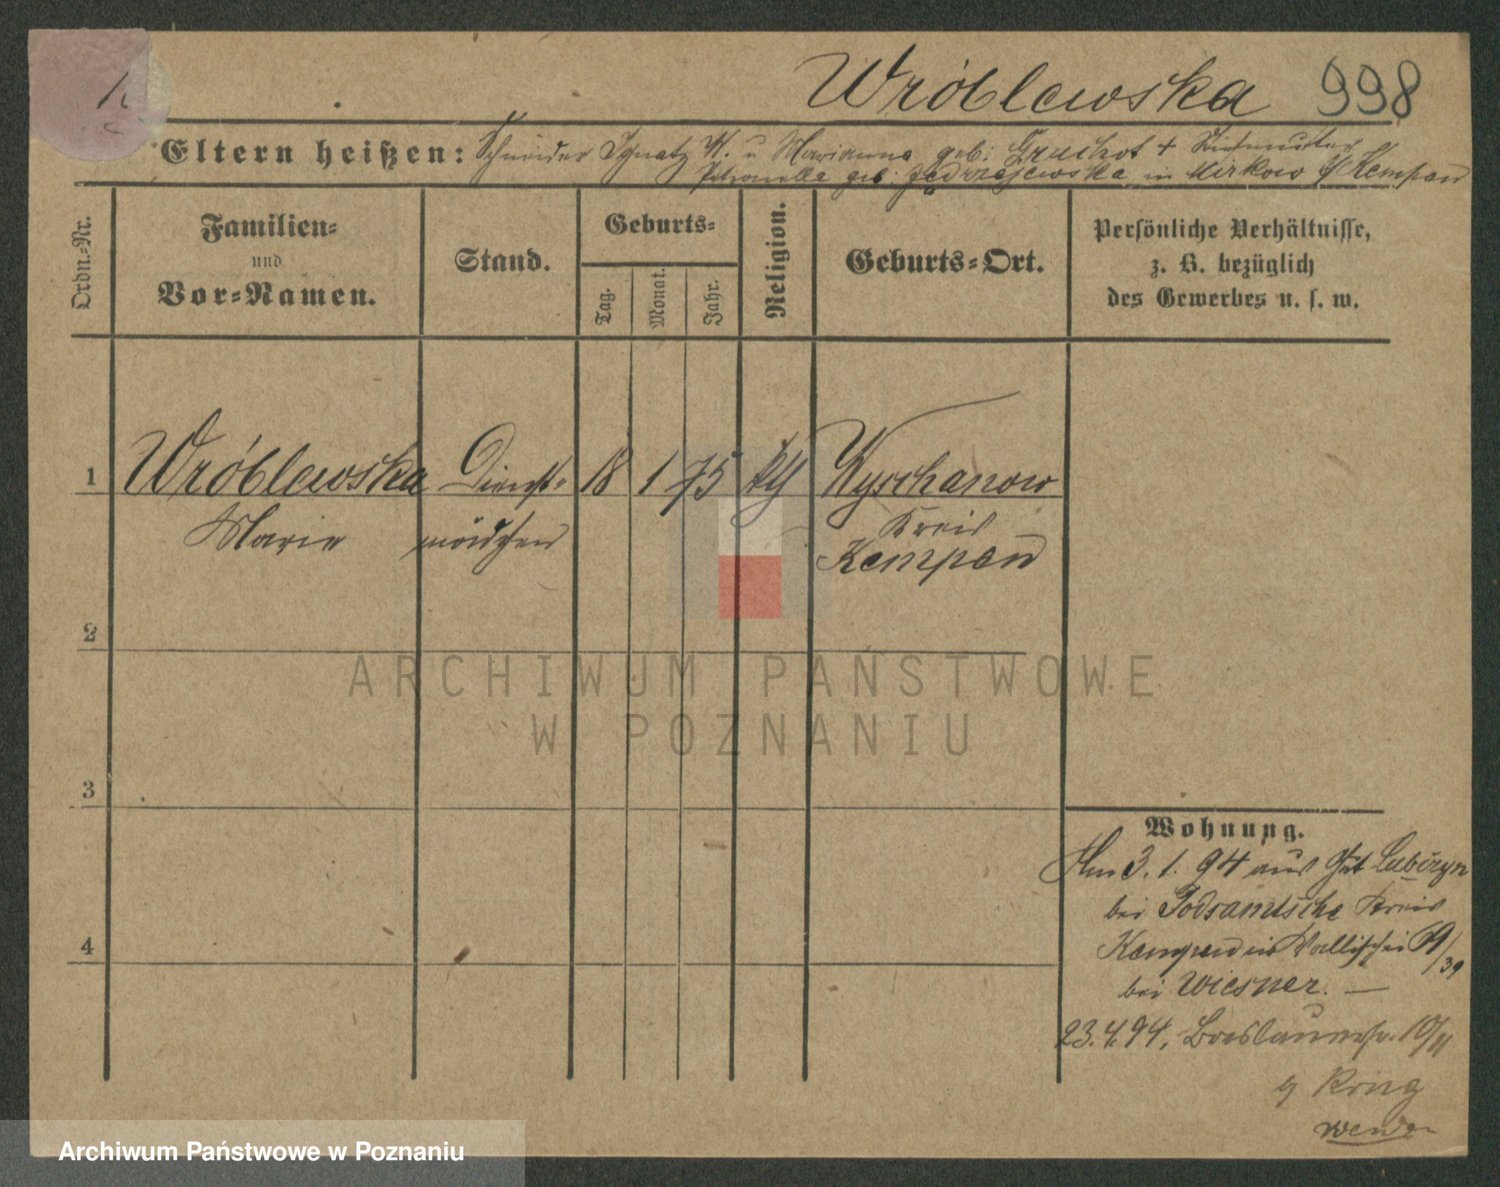 Wróblewska 998
Eltern heißen: Schneider Ignatz W. u Marianna geb: Gruchot + Stiefmutter
Petronella geb: Jędrzejewska in Mirkow Kr Kempen
Ordn.-Nr.
Familien-
und
Vor-Namen.
Stand.
Geburts-
Tag.
Monat.
Jahr.
Religion.
Geburts-Ort.
Persönliche Verhältnisse,
z. B. bezüglich
des Gewerbes u. s. w.
1 Wróblewska Dienst- 18 1 75 Wyschanow
Marie mädchen Kreis
Kempen
2
3
4
ARCHIWUM PAŃSTWOWE
W POZNANIU
Wohnung.
Am 3. 1. 94 aus Gut
bei Podsamtsche Kreis
Kempen in Wallischei 39
bei Wiesner. —
23.4.94, Breslauerstr. 10/11
b/ Kring
wenden
Archiwum Państwowe w Poznaniu